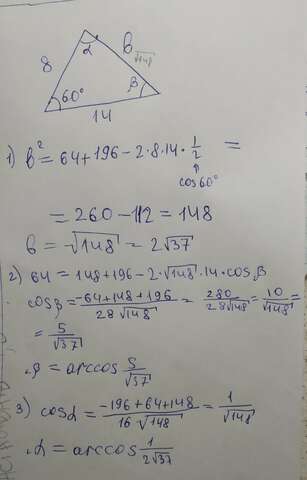 8
α
в
√148
60°
β
14
1) в² = 64 + 196 − 2·8·14·1/2 =
↑
cos60°
= 260 − 112 = 148
в = √148 = 2√37
2) 64 = 148 + 196 − 2·√148·14·cosβ
cosβ = (−64+148+196)/(28√148) = 280/(28√148) = 10/√148 =
= 5/√37
β = arccos 5/√37
3) cosα = (−196+64+148)/(16√148) = 1/√148
α = arccos 1/(2√37)